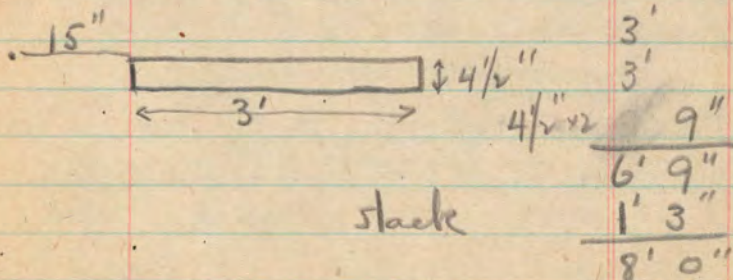 15" 3'
4 1/2" 3'
3' 4 1/2" x2 9"
6' 9"
slack 1' 3"
8' 0"